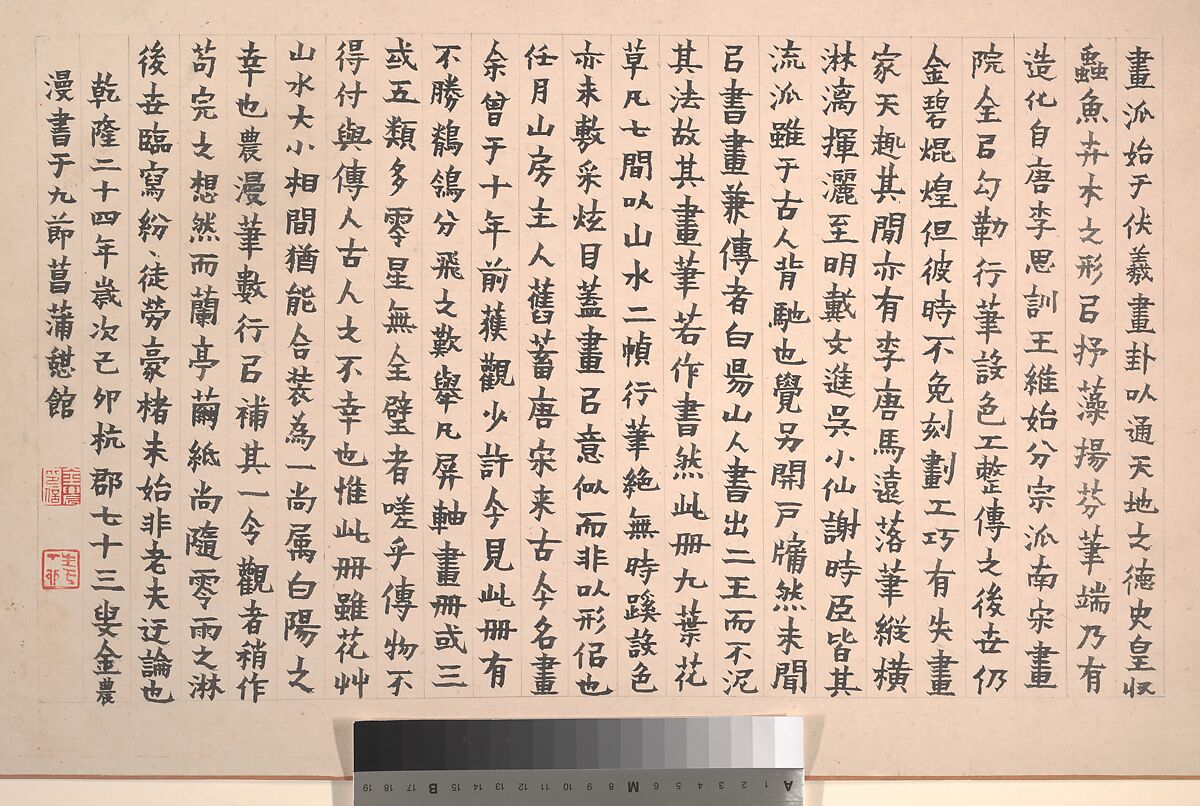 畫派始于伏羲畫卦以通天地之德史皇收
蟲魚卉木之形㠯抒藻揚芬筆端乃有
造化自唐李思訓王維始分宗派南宋畫
院全㠯勾勒行筆設色工整傳之後世仍
金碧焜煌但彼時不免刻劃工巧有失畫
家天趣其間亦有李唐馬遠落筆縱橫
淋漓揮灑至明戴文進吳小仙謝時臣皆其
流派雖于古人背馳也覺另開戶牖然未聞
㠯書畫兼傳者白昜山人書出二王而不泥
其法故其畫筆若作書然此冊九葉花
草凡七間以山水二幀行筆絕無時蹊設色
亦未敷采炫目蓋畫㠯意似而非以形侶也
任月山房主人舊畜唐宋来古今名畫
余曾于十年前獲觀少許今見此冊有
不勝鶺鴒分飛之歎舉凡屏軸畫冊或三
或五類多零星無全璧者嗟乎傳物不
得付與傳人古人之不幸也惟此冊雖花艸
山水大小相間猶能合裝為一尚属白陽之
幸也農漫筆數行㠯補其一令觀者稍作
苟完之想然而蘭亭繭紙尚隨零雨之淋
後世臨寫紛紛徒勞豪楮未始非老夫迂論也
乾隆二十四年歲次己卯杭郡七十三叟金農
漫書于九節菖蒲憇館
金農印信